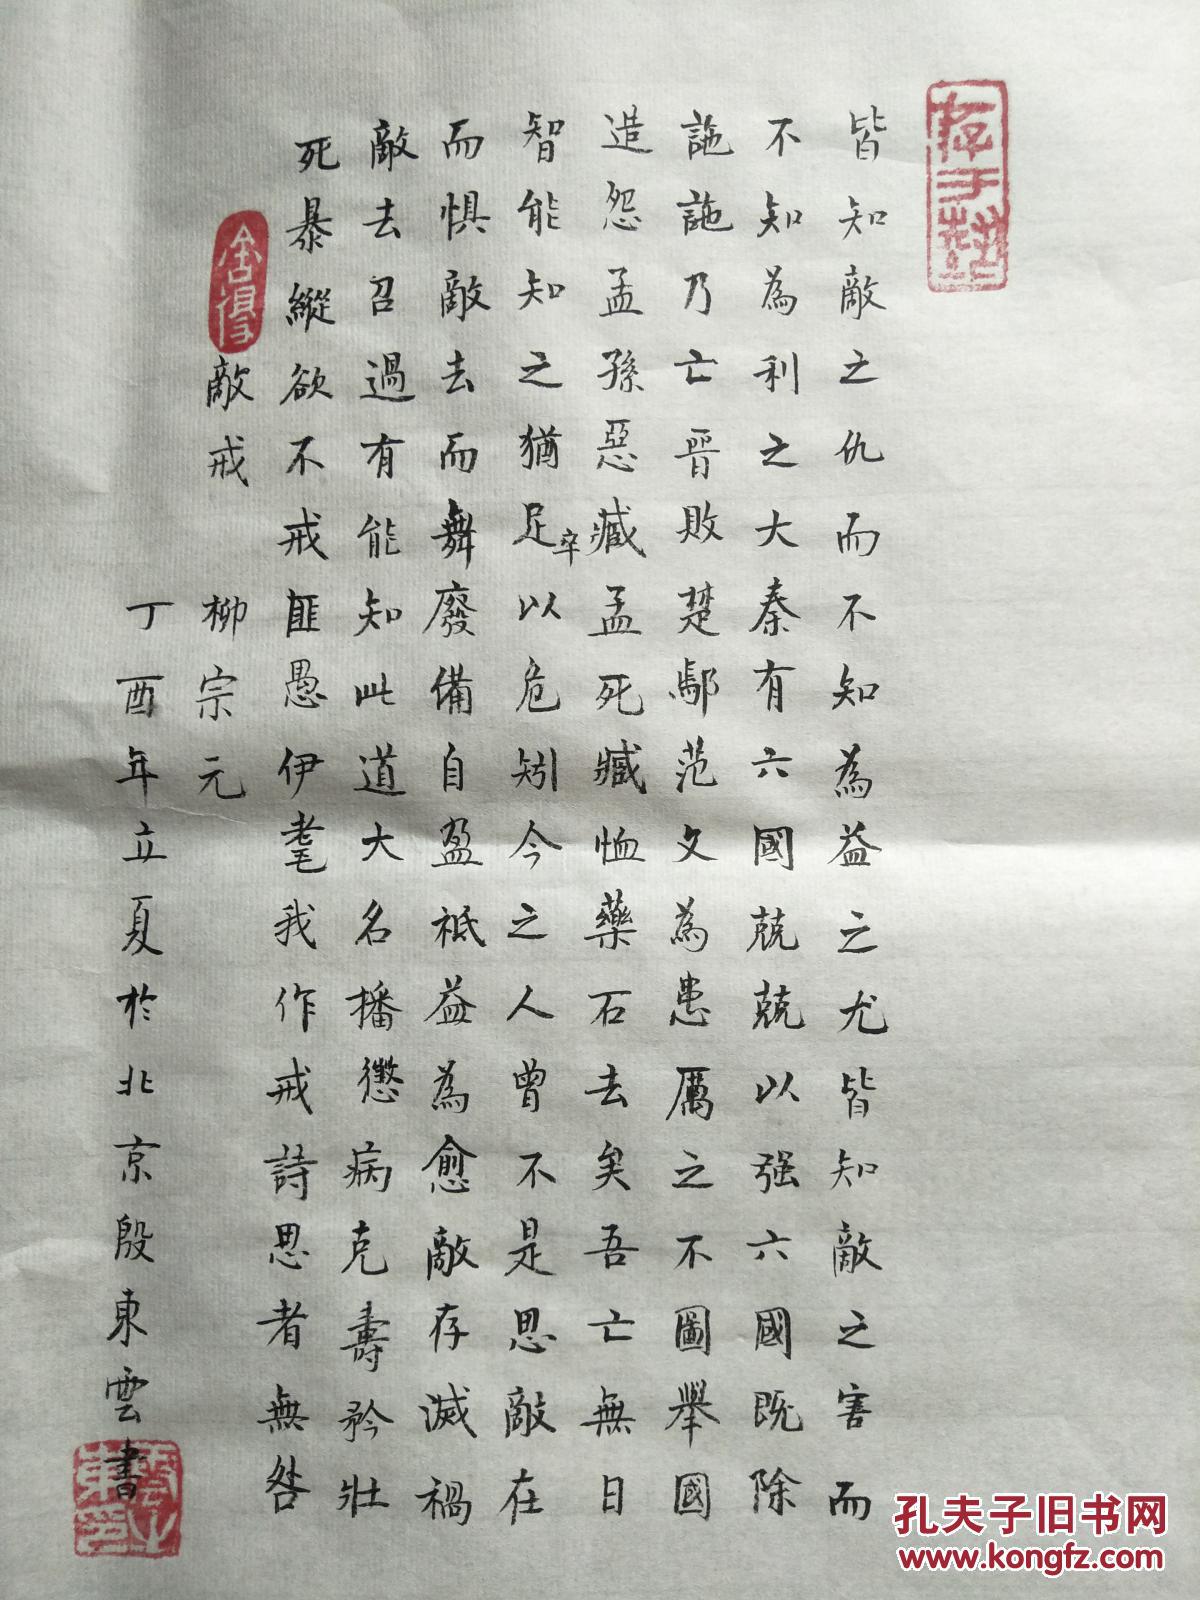 皆知敵之仇而不知為益之尤皆知敵之害而
不知為利之大秦有六國兢兢以强六國既除
訑訑乃亡晉敗楚鄢范文為患厲之不圖舉國
造怨孟孫惡臧孟死臧恤藥石去矣吾亡無日
卒
智能知之猶足以危矧今之人曾不是思敵在
而惧敵去而舞廢備自盈祗益為愈敵存滅禍
敵去召過有能知此道大名播懲病克壽矜壯
死暴縱欲不戒匪愚伊耄我作戒詩思者無咎
舍得
敵戒 柳宗元
丁酉年立夏於北京殷東雲書
孔夫子旧书网
www.kongfz.com